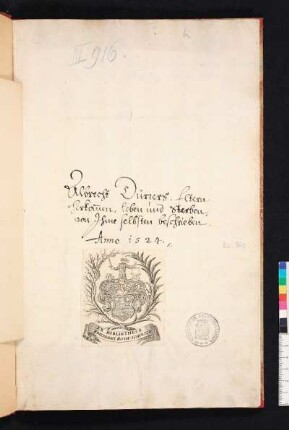 II 916.
Albrecht Dürers, Eltern
herkomen, leben und sterben,
von Ihme selbsten beschrieben
Anno 1524.
EX BIBLIOTHECA